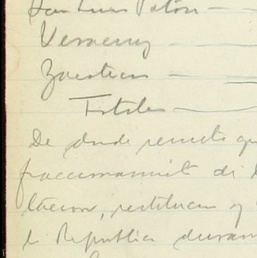 San Luis Potosí
Veracruz
Zacatecas
Totales
De donde resulta qu
fraccionamient de l
lacion, restituc y
la Republica duran